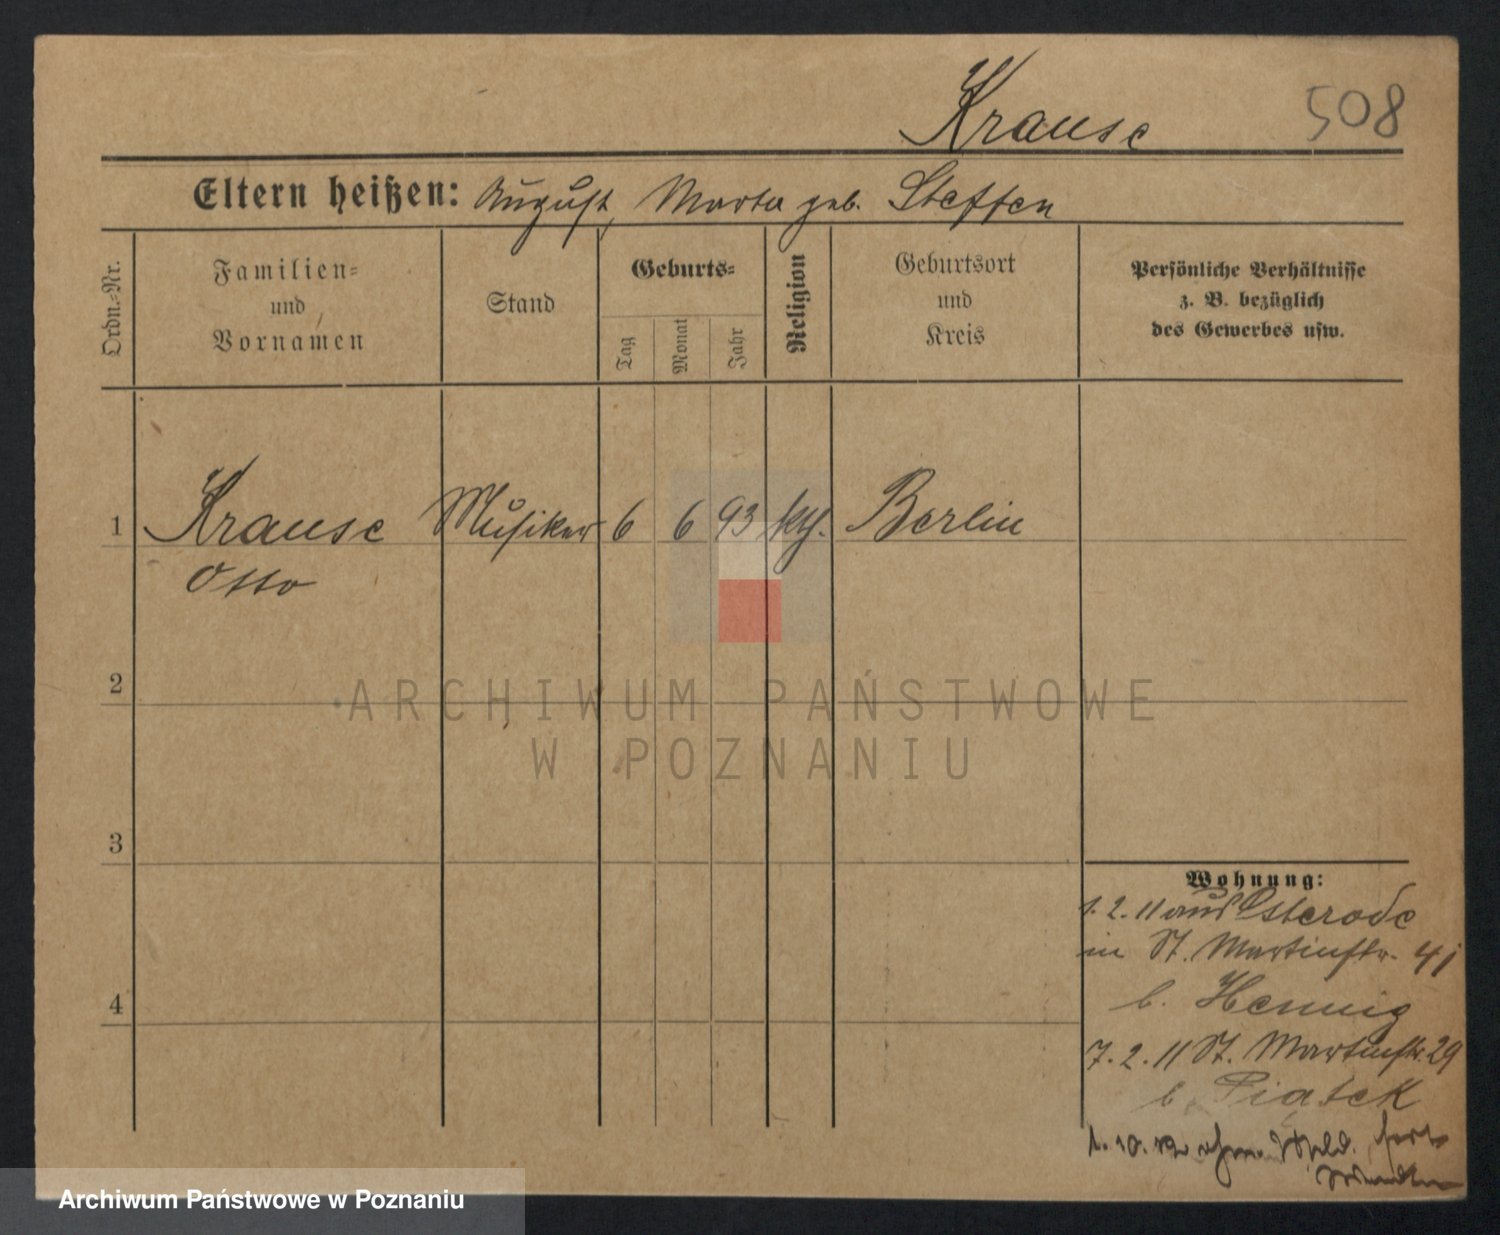 Krause 508
Eltern heißen: August, Marta geb. Steffen
Ordn.-Nr.
Familien-
und
Vornamen
Stand
Geburts-
Tag
Monat
Jahr
Religion
Geburtsort
und
Kreis
Persönliche Verhältnisse
z. B. bezüglich
des Gewerbes usw.
1 Krause Musiker 6 6 93 kth. Berlin
Otto
2
3
4
Wohnung:
1. 2. 11 aus Osterode
in St. Martinstr. 41
b. Hennig
7. 2. 11 St. Martinstr. 29
b. Piatek
1. 10. ohne
ARCHIWUM PAŃSTWOWE
W POZNANIU
Archiwum Państwowe w Poznaniu